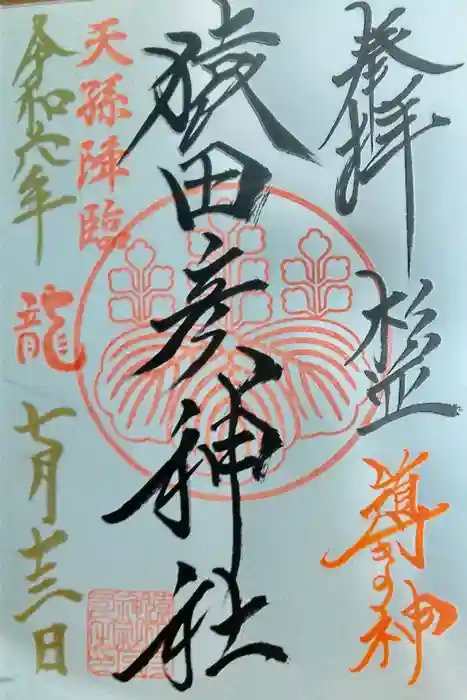 奉拝 杉並
導きの神
猿田彦神社
天孫降臨
龍
令和六年
七月十三日